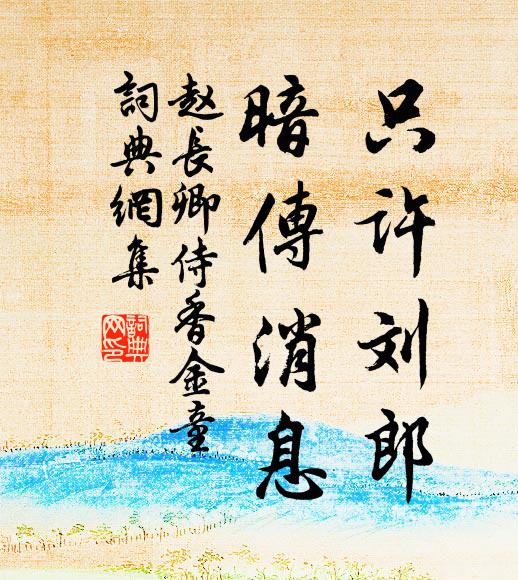 只许刘郎
暗傳消息
赵長卿侍香金童
詞典網集
詞典
网印